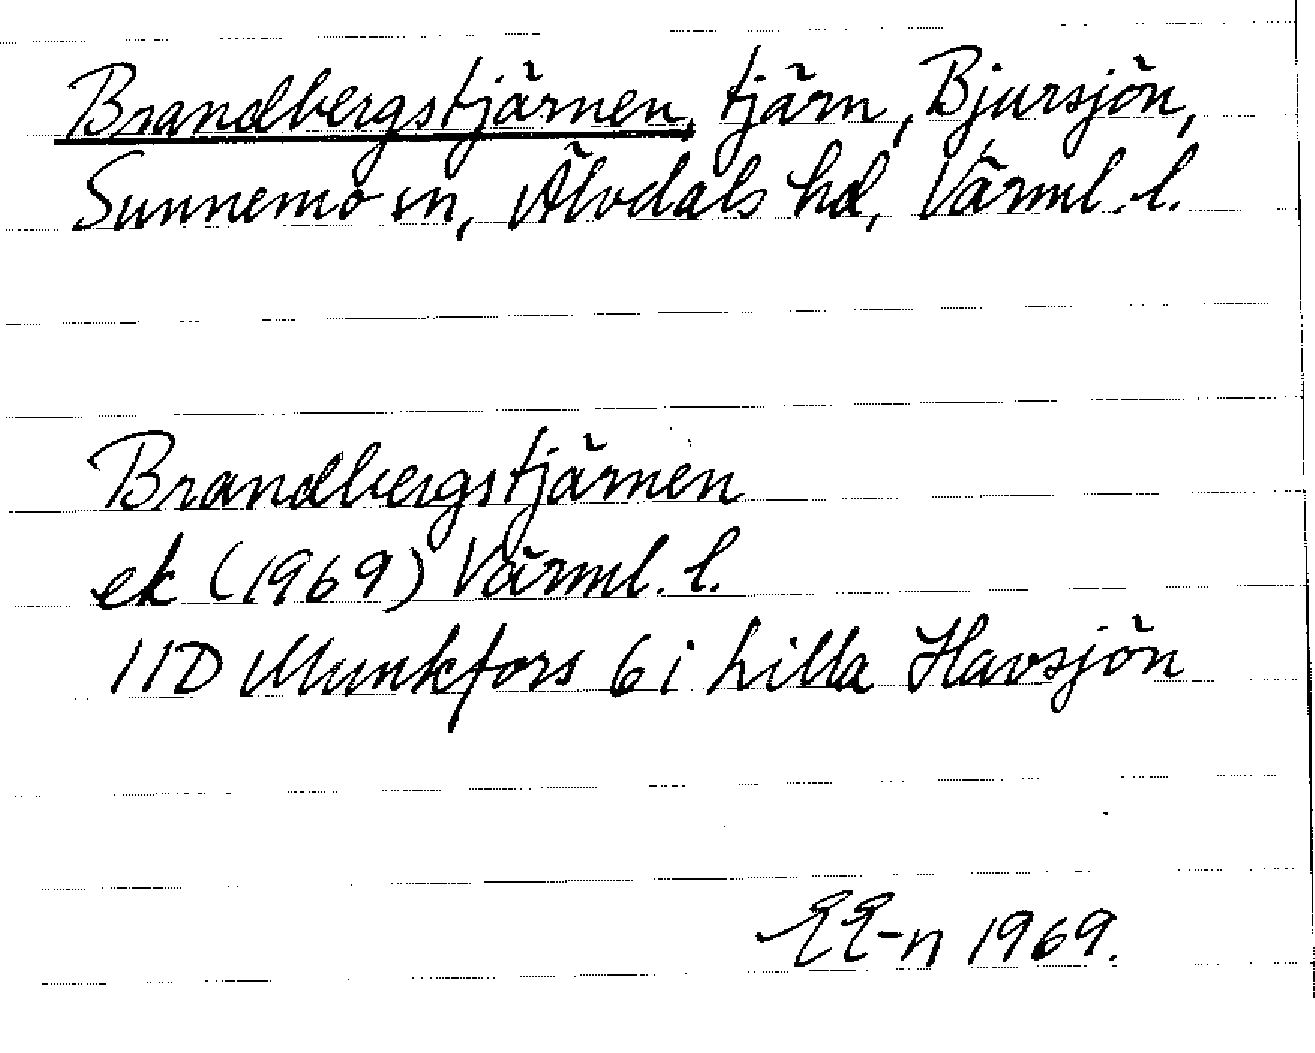 Brandbergstjärnen, tjärn, Bjursjön,
Sunnemo sn, Älvdals hd, Värml. l.
Brandbergstjärnen
ek (1969) Värml. l.
11D Munkfors 6 i Lilla Havsjön
EE-n 1969.